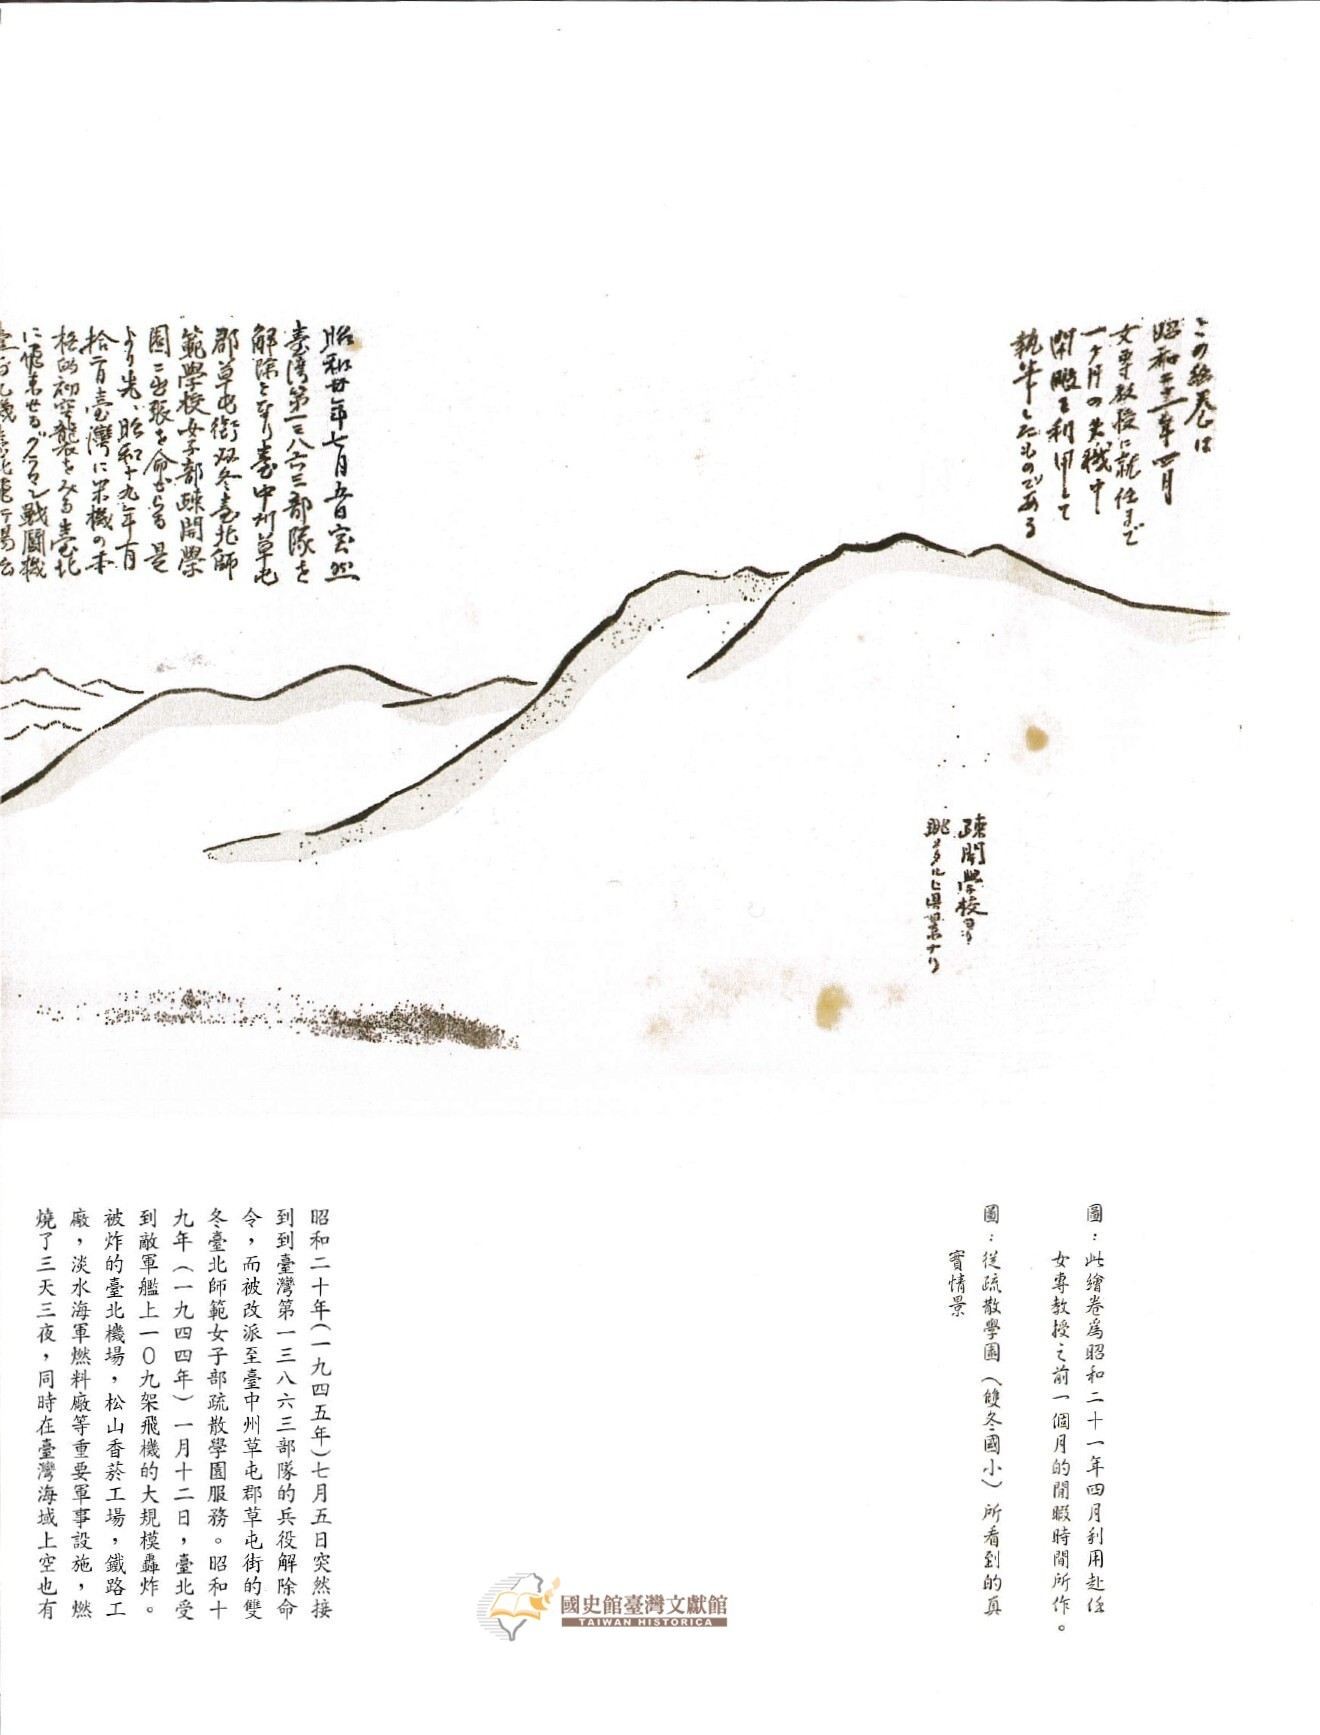 この絵巻は
昭和二十一年四月
女専教授に就任まで
一ヶ月の失職中
閑暇を利用して
執筆したものである
疎開学校ヨリ
眺メタル実景ナリ
昭和廿年七月五日突然
臺湾第一三八六三部隊を
解除となり臺中州草屯
郡草屯街双冬臺北師
範學校女子部疎開學
園に出張を命ぜらる 是
より先、昭和十九年十月
拾二日臺灣に米機の本
格的初空襲をみる臺北
に飛来せるグラマン戦闘機
圖：此繪卷為昭和二十一年四月利用赴任
女專教授之前一個月的閒暇時間所作。
圖：從疏散學園（雙冬國小）所看到的真
實情景
昭和二十年(一九四五年)七月五日突然接
到到臺灣第一三八六三部隊的兵役解除命
令，而被改派至臺中州草屯郡草屯街的雙
冬臺北師範女子部疏散學園服務。昭和十
九年（一九四四年）一月十二日，臺北受
到敵軍艦上一０九架飛機的大規模轟炸。
被炸的臺北機場，松山香菸工場，鐵路工
廠，淡水海軍燃料廠等重要軍事設施，燃
燒了三天三夜，同時在臺灣海域上空也有
國史館臺灣文獻館
TAIWAN HISTORICA